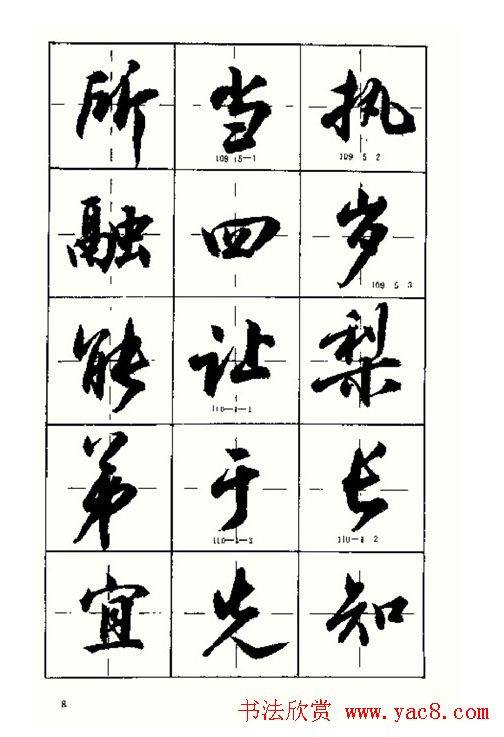 所当执
融四岁
能让梨
弟于长
宜先知
109 5-1
109 5 2
109 5 3
110-1-1
110-1-3
110-1 2
8
书法欣赏 www.yac8.com